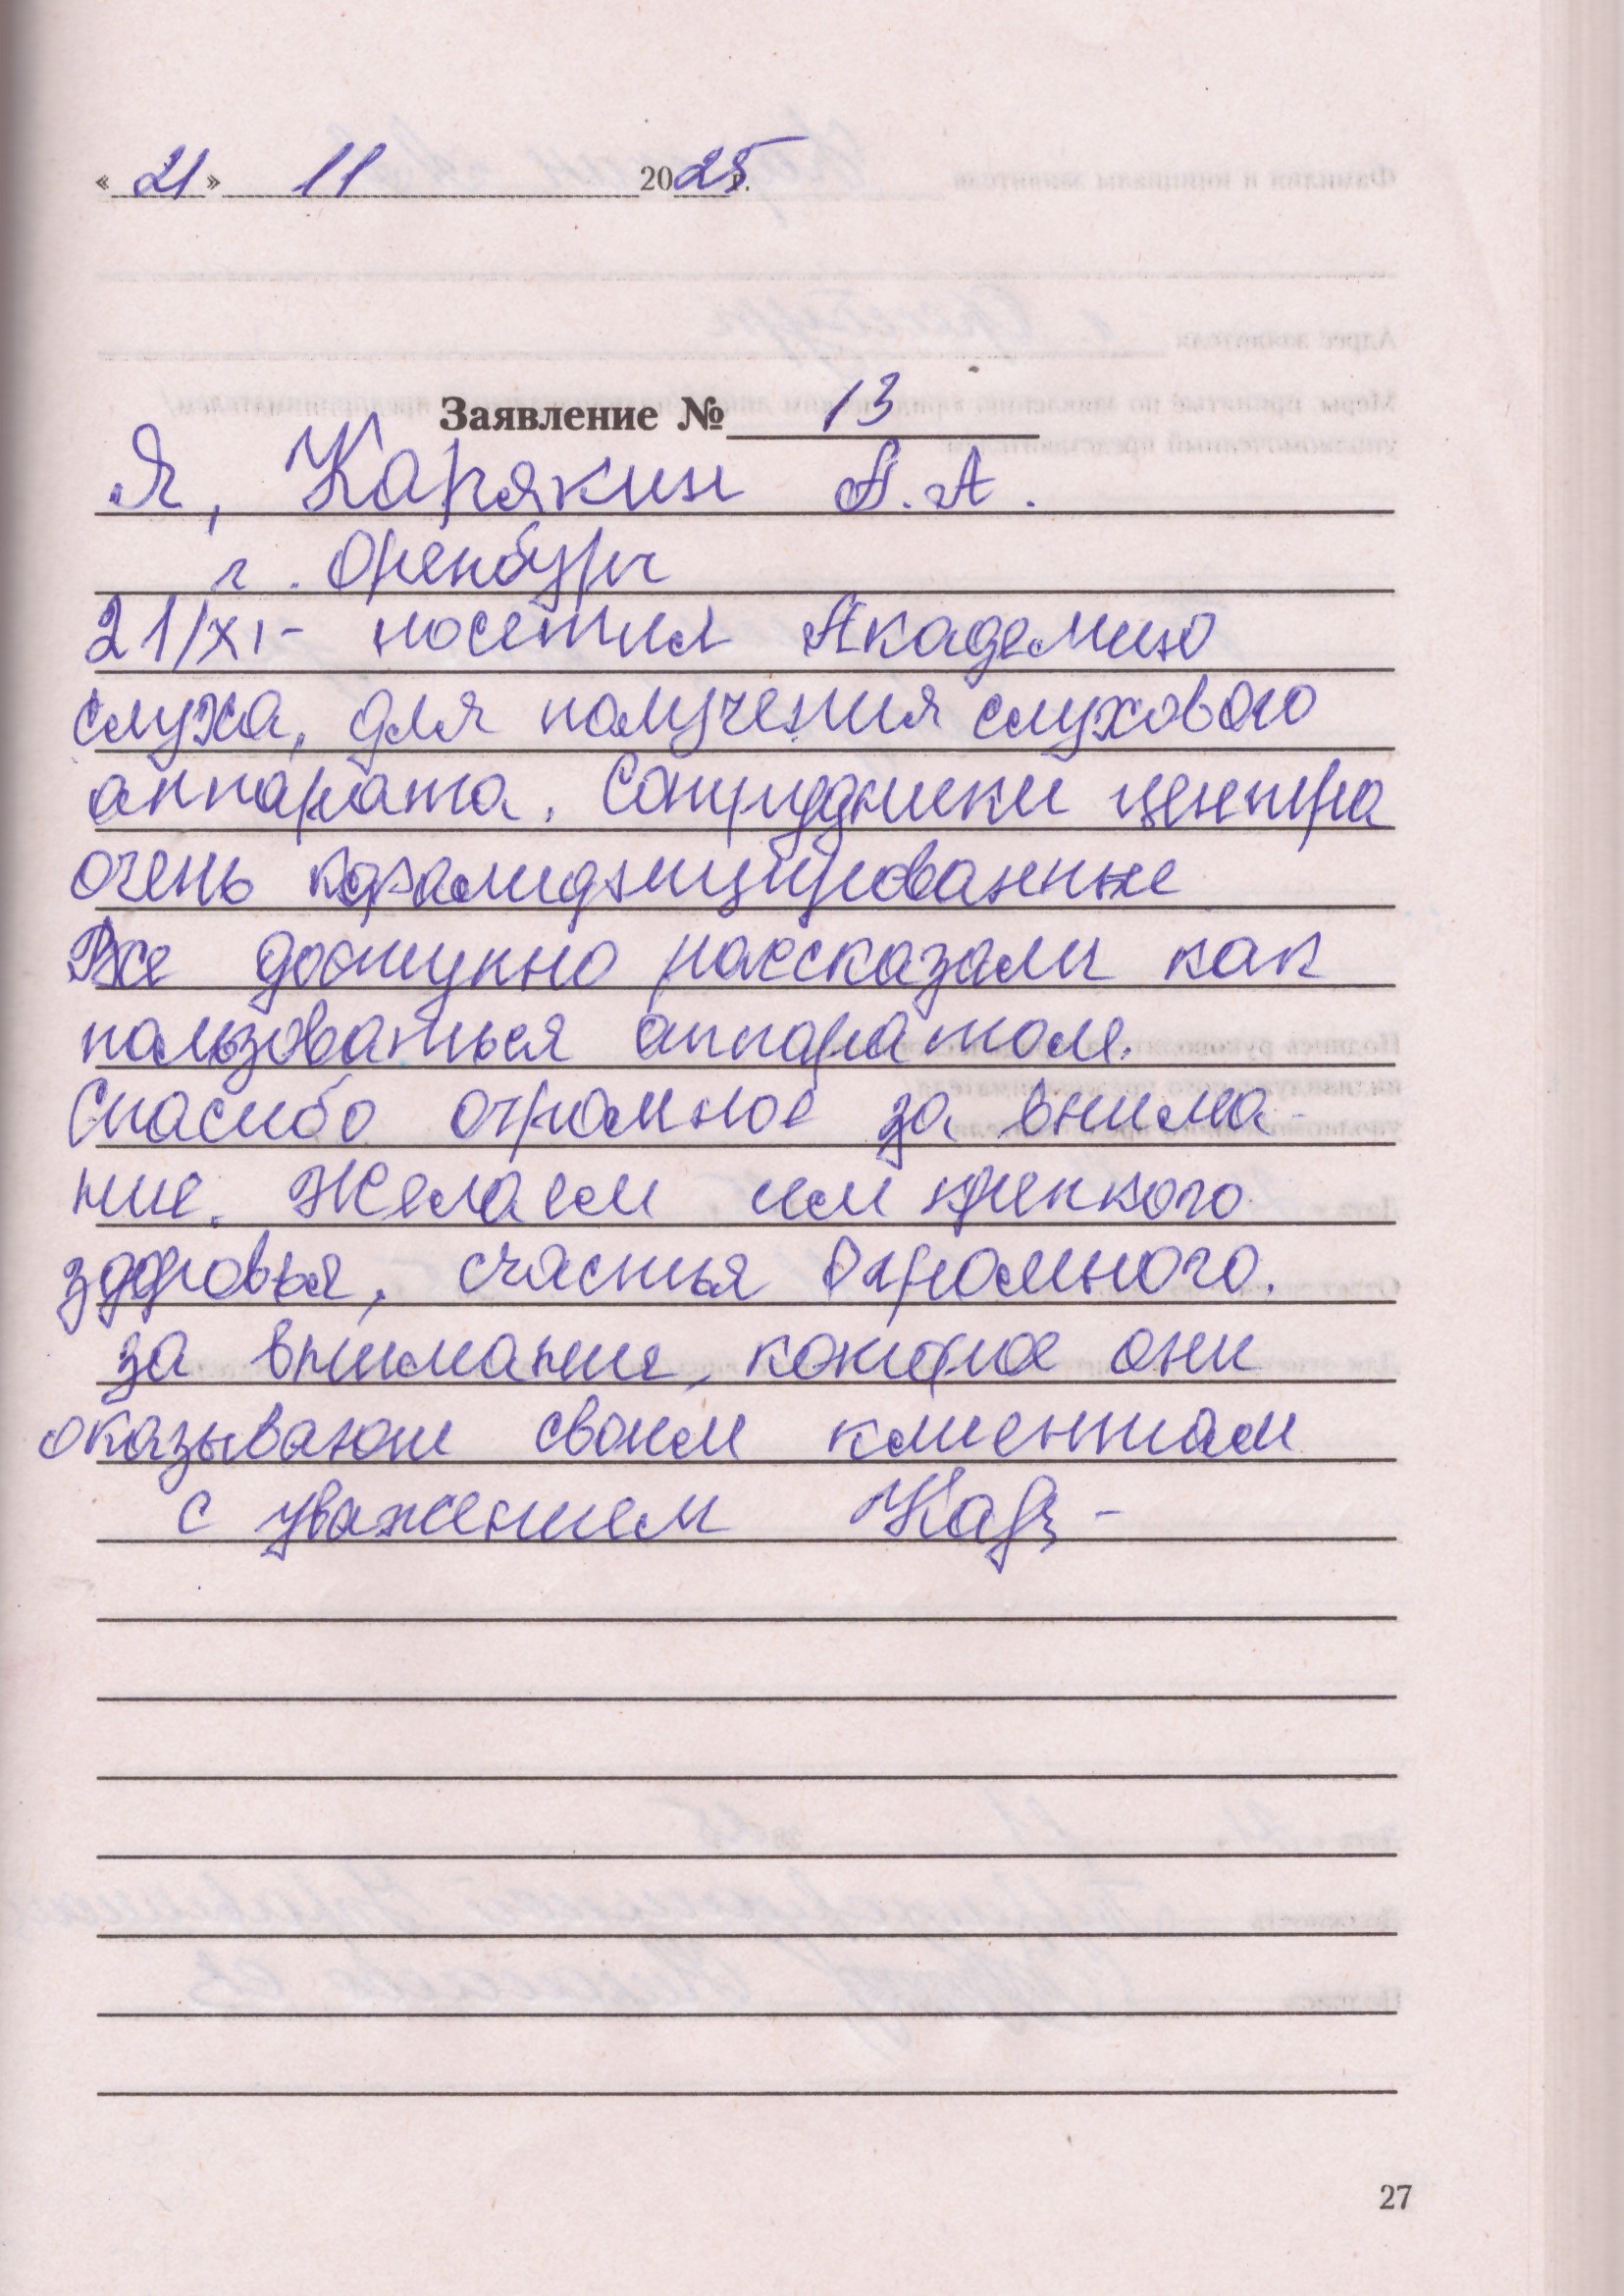 «21» 11 2025 г.
Заявление № 13
Я, Карякин А.А.
г. Оренбург
21/XI- посетил Академию
слуха, для получения слухового
аппарата. Сотрудники центра
очень квалифицированные
Все доступно рассказали как
пользоваться аппаратом.
Спасибо огромное за внима-
ние. Желаем им крепкого
здоровья, счастья огромного.
за внимание, которое они
оказывают своим клиентам
с уважением Кар -
27